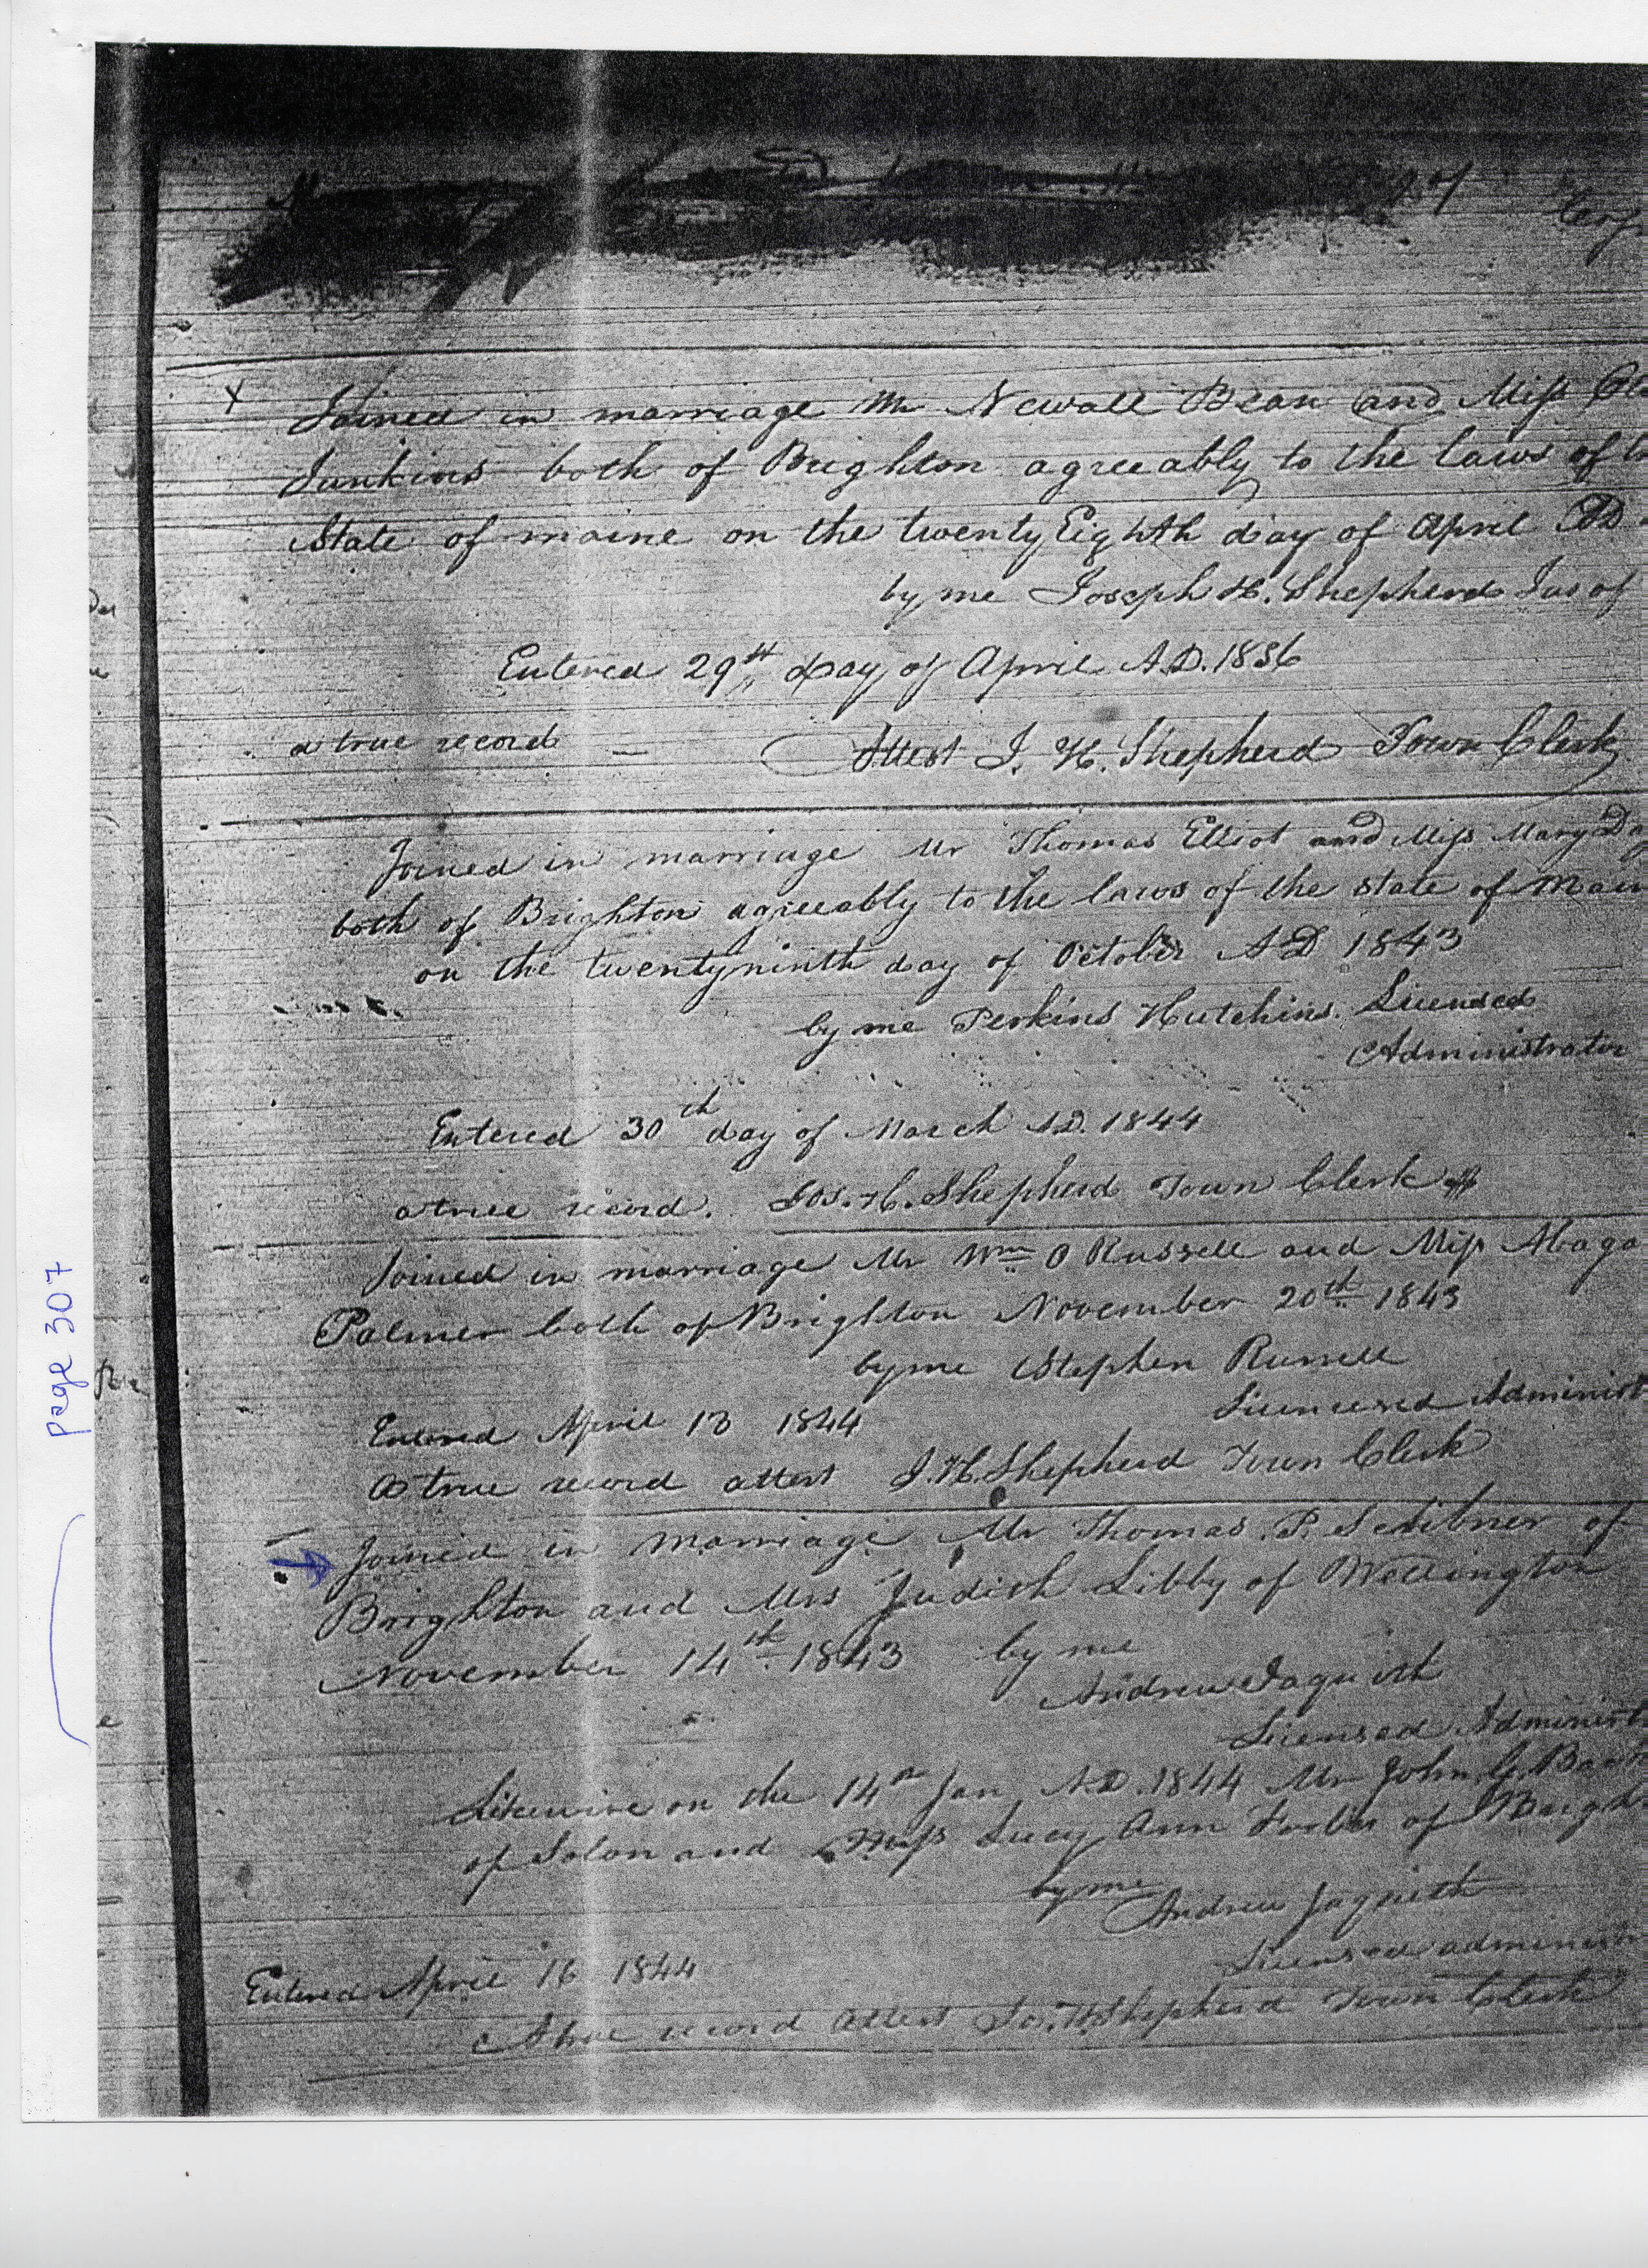 Joined in marriage Mr Newall Bean and Miss
Junkins both of Brighton agreeably to the laws of
State of maine on the twenty Eighth day of April AD
by me Joseph H. Shepherd Jus of
Entered 29th day of April A.D. 1836
a true record – Attest J. H. Shepherd Town Clerk
Joined in marriage Mr Thomas Elliot and Miss Mary
both of Brighton agreeably to the laws of the state of
on the twentyninth day of October AD 1843
by me Perkins Hutchins. Licensed
Administrator
Entered 30th day of March A.D. 1844
a true record. Jos. H. Shepherd Town Clerk
Joined in marriage Mr Wm O Russell and Miss Abaga
Palmer both of Brighton November 20th 1843
by me Stephen Russell
Licensed Administ
Entered April 13 1844
A true record attest J. H. Shepherd Town Clerk
Joined in marriage Mr Thomas. P. Scribner of
Brighton and Mrs Judith Libby of Wellington
November 14th 1843 by me
Andrew Jaquith
Licensed Administ
Likewise on the 14th Jan A.D. 1844 Mr John G.
of Solon and Miss Lucy Ann of
by me
Andrew Jaquith
Licensed administ
Entered April 16 1844
A true record attest Jos. H. Shepherd Town Clerk
page 307